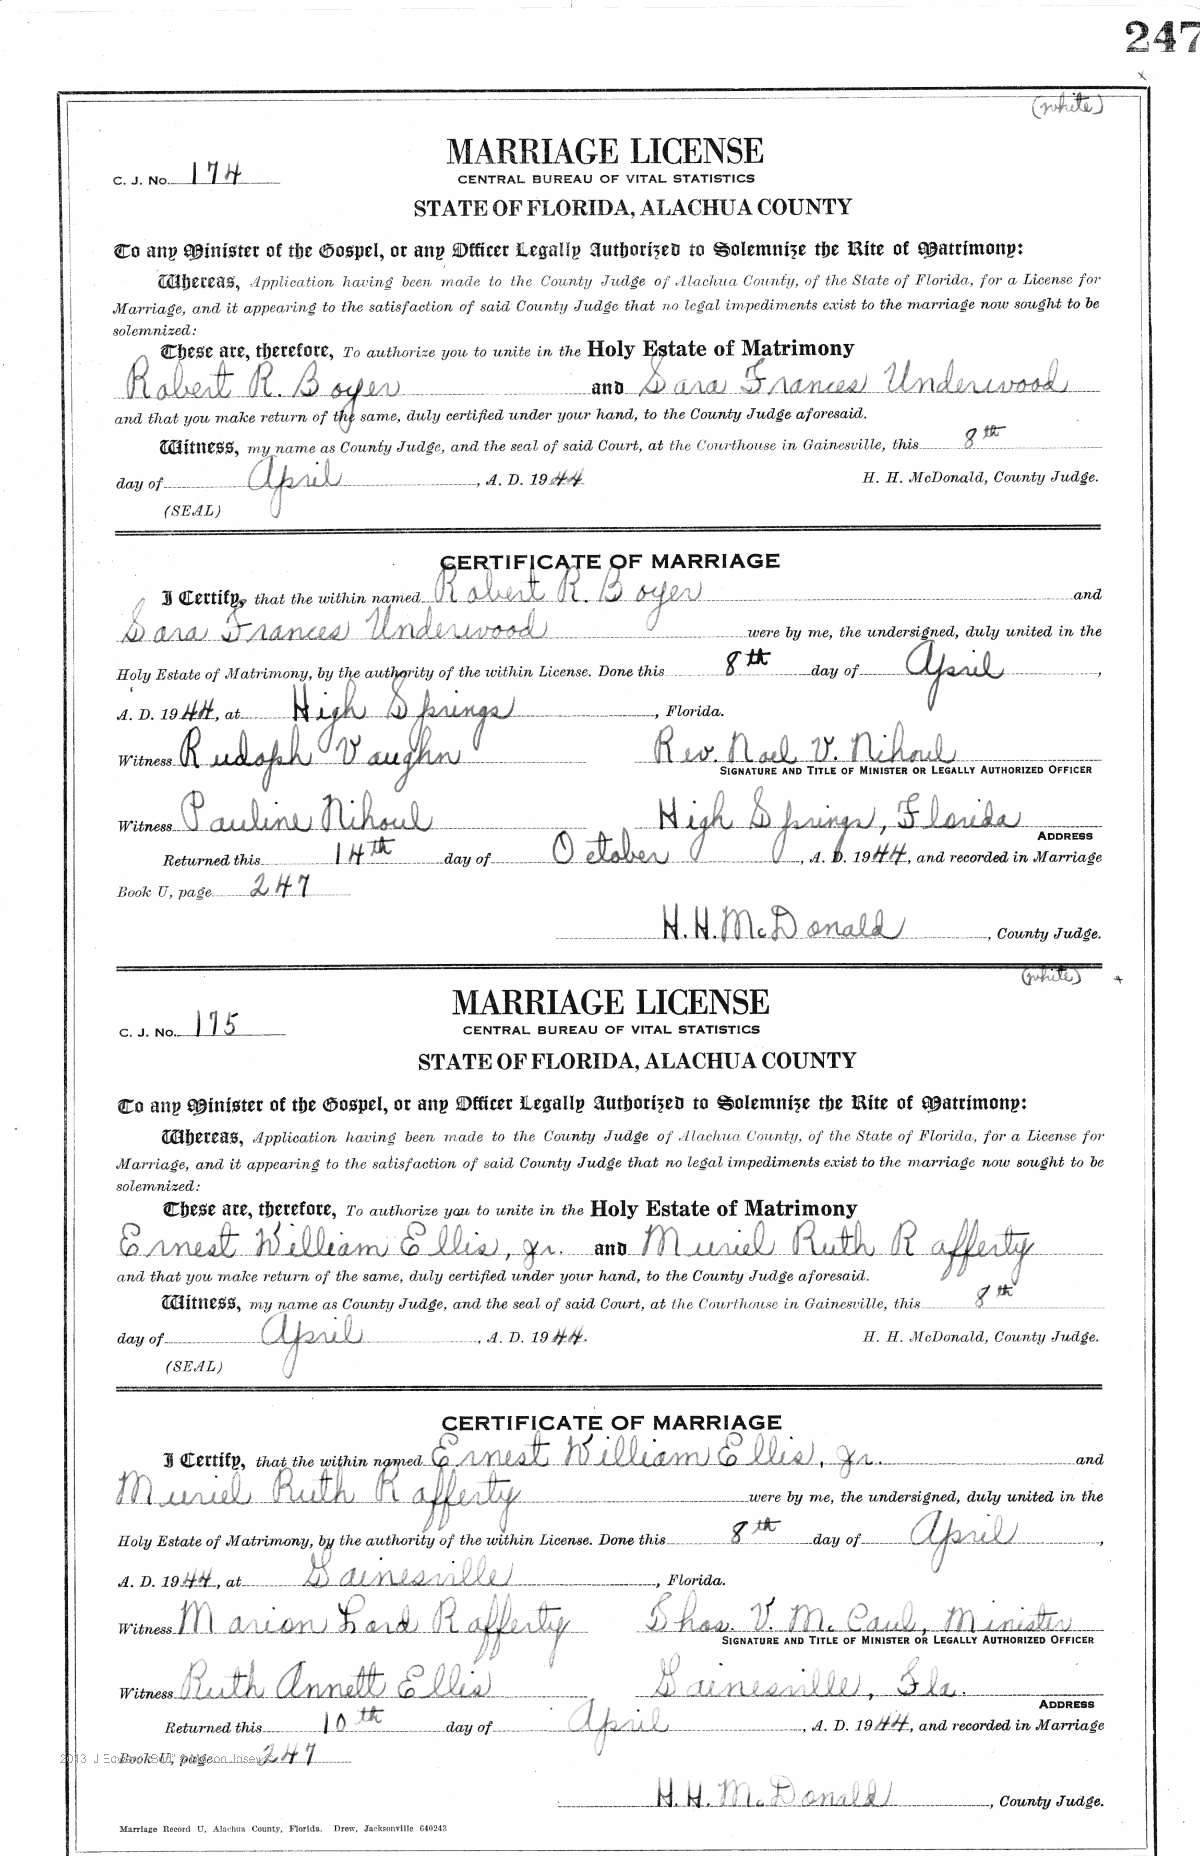 247
(white)
MARRIAGE LICENSE
C. J. No. 174
CENTRAL BUREAU OF VITAL STATISTICS
STATE OF FLORIDA, ALACHUA COUNTY
To any Minister of the Gospel, or any Officer Legally Authorized to Solemnize the Rite of Matrimony:
Whereas, Application having been made to the County Judge of Alachua County, of the State of Florida, for a License for
Marriage, and it appearing to the satisfaction of said County Judge that no legal impediments exist to the marriage now sought to be
solemnized:
These are, therefore, To authorize you to unite in the Holy Estate of Matrimony
Robert R. Boyer and Sara Frances Underwood
and that you make return of the same, duly certified under your hand, to the County Judge aforesaid.
Witness, my name as County Judge, and the seal of said Court, at the Courthouse in Gainesville, this 8th
day of April, A. D. 1944 H. H. McDonald, County Judge.
(SEAL)
CERTIFICATE OF MARRIAGE
I Certify, that the within named Robert R. Boyer and
Sara Frances Underwood were by me, the undersigned, duly united in the
Holy Estate of Matrimony, by the authority of the within License. Done this 8th day of April,
A. D. 1944, at High Springs, Florida.
Witness Rudoph Vaughn Rev. Noel V. Nihoul
SIGNATURE AND TITLE OF MINISTER OR LEGALLY AUTHORIZED OFFICER
Witness Pauline Nihoul High Springs, Florida
ADDRESS
Returned this 14th day of October, A. D. 1944, and recorded in Marriage
Book U, page 247
H. H. McDonald, County Judge.
(white)
MARRIAGE LICENSE
C. J. No. 175
CENTRAL BUREAU OF VITAL STATISTICS
STATE OF FLORIDA, ALACHUA COUNTY
To any Minister of the Gospel, or any Officer Legally Authorized to Solemnize the Rite of Matrimony:
Whereas, Application having been made to the County Judge of Alachua County, of the State of Florida, for a License for
Marriage, and it appearing to the satisfaction of said County Judge that no legal impediments exist to the marriage now sought to be
solemnized:
These are, therefore, To authorize you to unite in the Holy Estate of Matrimony
Ernest William Ellis, Jr. and Muriel Ruth Rafferty
and that you make return of the same, duly certified under your hand, to the County Judge aforesaid.
Witness, my name as County Judge, and the seal of said Court, at the Courthouse in Gainesville, this 8th
day of April, A. D. 1944. H. H. McDonald, County Judge.
(SEAL)
CERTIFICATE OF MARRIAGE
I Certify, that the within named Ernest William Ellis, Jr. and
Muriel Ruth Rafferty were by me, the undersigned, duly united in the
Holy Estate of Matrimony, by the authority of the within License. Done this 8th day of April,
A. D. 1944, at Gainesville, Florida.
Witness Marion Lord Rafferty Thos. V. McCaul, Minister
SIGNATURE AND TITLE OF MINISTER OR LEGALLY AUTHORIZED OFFICER
Witness Ruth Annett Ellis Gainesville, Fla.
ADDRESS
Returned this 10th day of April, A. D. 1944, and recorded in Marriage
Book U, page 247
H. H. McDonald, County Judge.
Marriage Record U, Alachua County, Florida. Drew, Jacksonville 640243